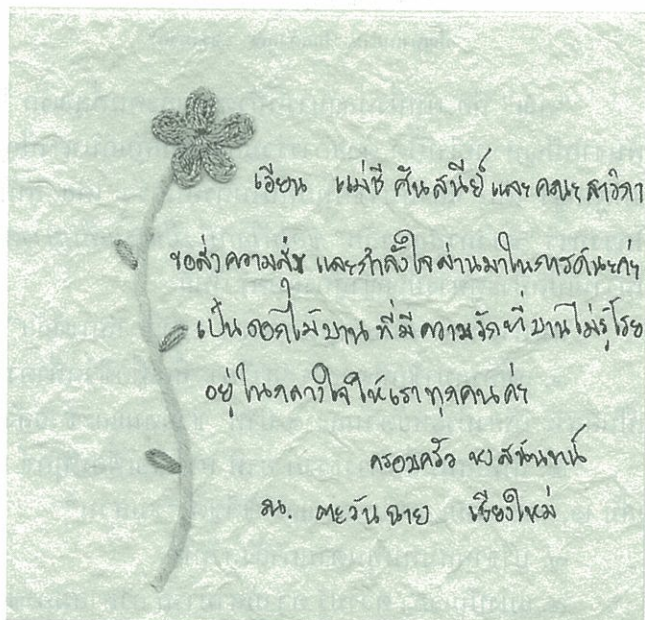 เรียน แม่ชี ศันสนีย์ และคณะสาวิกา
ขอส่งความสุข และกำลังใจผ่านมาในการ์ดนะค่ะ
เป็นดอกไม้บาน ที่มีความรักที่บานไม่รู้โรย
อยู่ในกลางใจให้เราทุกคนค่ะ
ครอบครัว
ตะวันฉาย เชียงใหม่